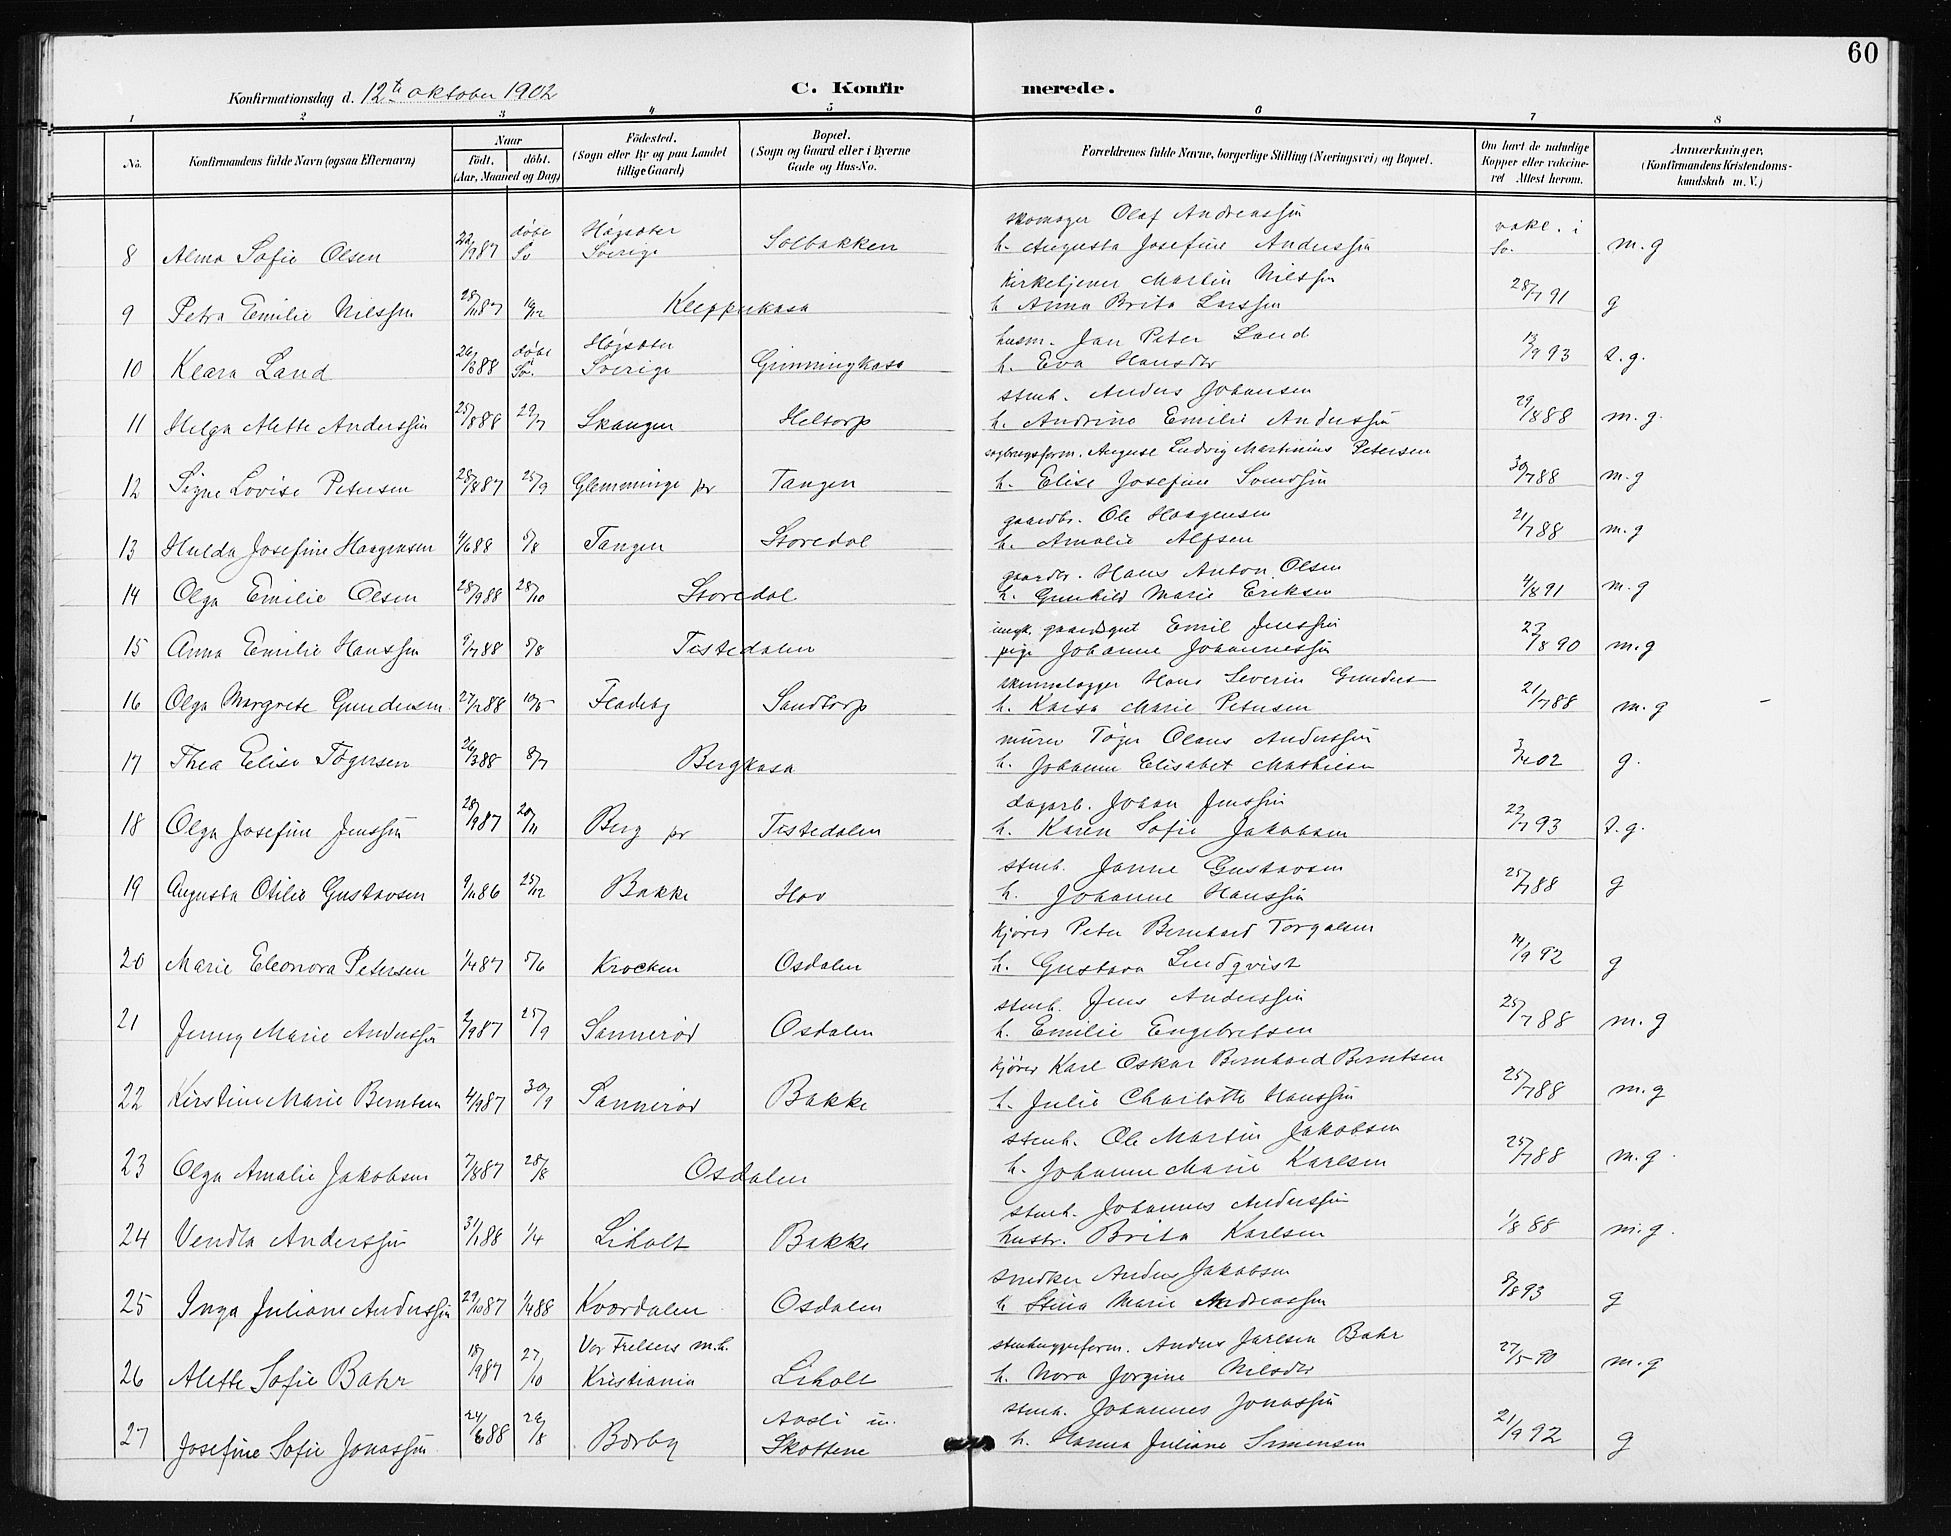 60
Konfirmationsdag d. 12te oktober 1902 C. Konfirmerede.
1 2 3 4 5 6 7 8
No. Konfirmandens fulde Navn (ogsaa Efternavn) Naar født. døbt. (Aar, Maaned og Dag) Fødested. (Sogn eller By og paa Landet tillige Gaard) Bopæl. (Sogn og Gaard eller i Byerne Gade og Hus-No. Forældrenes fulde Navne, borgerlige Stilling (Næringsvei) og Bopæl. Om havt de naturlige Kopper eller vakcineret Attest herom. Anmærkninger, (Konfirmandens Kristendomskundskab m. V.)
skomager Olaf Andreassen
8 Alma Sofie Olsen 22/9 87 døbt Sv Høgsæter Sverige Solbakken h. Augusta Josefine Anderssen vakc. i Sv. m.g
kirketjener Martin Nilssen
9 Petra Emilie Nilssen 28/11 87 16/12 Kleppukasa h Anna Brita Larssen 28/7 91 g
husm. Jan Peter Land
10 Klara Land 26/6 88 døbt Sv. Høgsæter Sverige Grimningkasa h. Eva Hansdtr 13/9 93 t.g.
stenh. Anders Johansen
11 Helga Alette Anderssen 29/7 Skangen Heltorp h. Andrine Emilie Anderssen 29/8 88 m.g.
August Ludvig Martinius Petersen
12 Signe Lovise Petersen 28/8 87 25/9 Glemminge pr Tangen h. Elise Josefine Svendsen 30/7 88 m.g
gaardbr. Ole Haagensen
13 Hulda Josefine Haagensen 9/6 88 5/8 Tangen Storedal h. Amalie Alfsen 21/7 88 m.g
gaardbr. Hans Anton Olsen
14 Olga Emilie Olsen 28/9 88 28/10 Storedal h. Gunhild Marie Eriksen 4/8 91 m.g
ungk. gaardsgut Emil Jenssen
15 Anna Emilie Hanssen 9/7 88 5/8 Tistedalen pige Johanne Johannessen 23/8 90 m.g
Hans Severin Gunders
16 Olga Margrete Gundersen 27/2 88 10/5 Fladeby Sandtorp h. Kaisa Marie Petersen 21/7 88 m.g
murer Tøger Olaus Anderssen
17 Thea Elise Tøgersen 26/3 88 8/7 Bergkasa h. Johanne Elisabet Mathiesen 3/4 02 g.
dagarb. Johan Jenssen
18 Olga Josefine Jenssen 28/9 87 20/11 Berg pr Tistedalen h. Karen Sofie Jakobsen 22/7 93 t.g.
stenh. Janne Gustavsen
19 Augusta Otilie Gustavsen 9/11 86 25/12 Bakke Hov h. Johanne Hanssen 25/7 88 g
kjører Peter Bernhard Torgalsen
20 Marie Eleonora Petersen 1/4 87 5/6 Krocken Osdalen h. Gustava Lindqvist 14/9 92 g
stenh. Jens Anderssen
21 Jenny Marie Anderssen 2/9 87 25/9 Sannerød Osdalen h. Emilie Engebretsen 25/7 88 m.g
kjører Karl Oskar Bernhard Berntsen
22 Kirstine Marie Berntsen 4/9 87 30/9 Sannerød Bakke h. Julie Charlotte Hanssen 25/7 88 m.g
stenh. Ole Martin Jakobsen
23 Olga Amalie Jakobsen 7/8 87 28/8 Osdalen h. Johanne Marie Karlsen 25/7 88 m.g.
stenh. Johannes Anderssen
24 Vendla Anderssen 31/1 88 1/4 Liholt Bakke hustr. Brita Karlsen 1/8 88 m.g.
snedker Anders Jakobsen
25 Inga Juliane Anderssen 29/10 87 1/4 88 Kvordalen Osdalen h Stina Marie Andreassen 8/8 93 g
stenhuggerform. Anders Jarlsen Bahr
26 Alette Sofie Bahr 18/9 87 27/10 Vor Frelsers m.h. Kristiania Liholt h. Nora Jørgine Nilsdtr 27/5 90 m.g
stenh. Johannes Jonassen
27 Josefine Sofie Jonassen 24/6 88 26/8 Børby Aasli u. Skottene h. Hanna Juliane Simensen 21/9 92 g